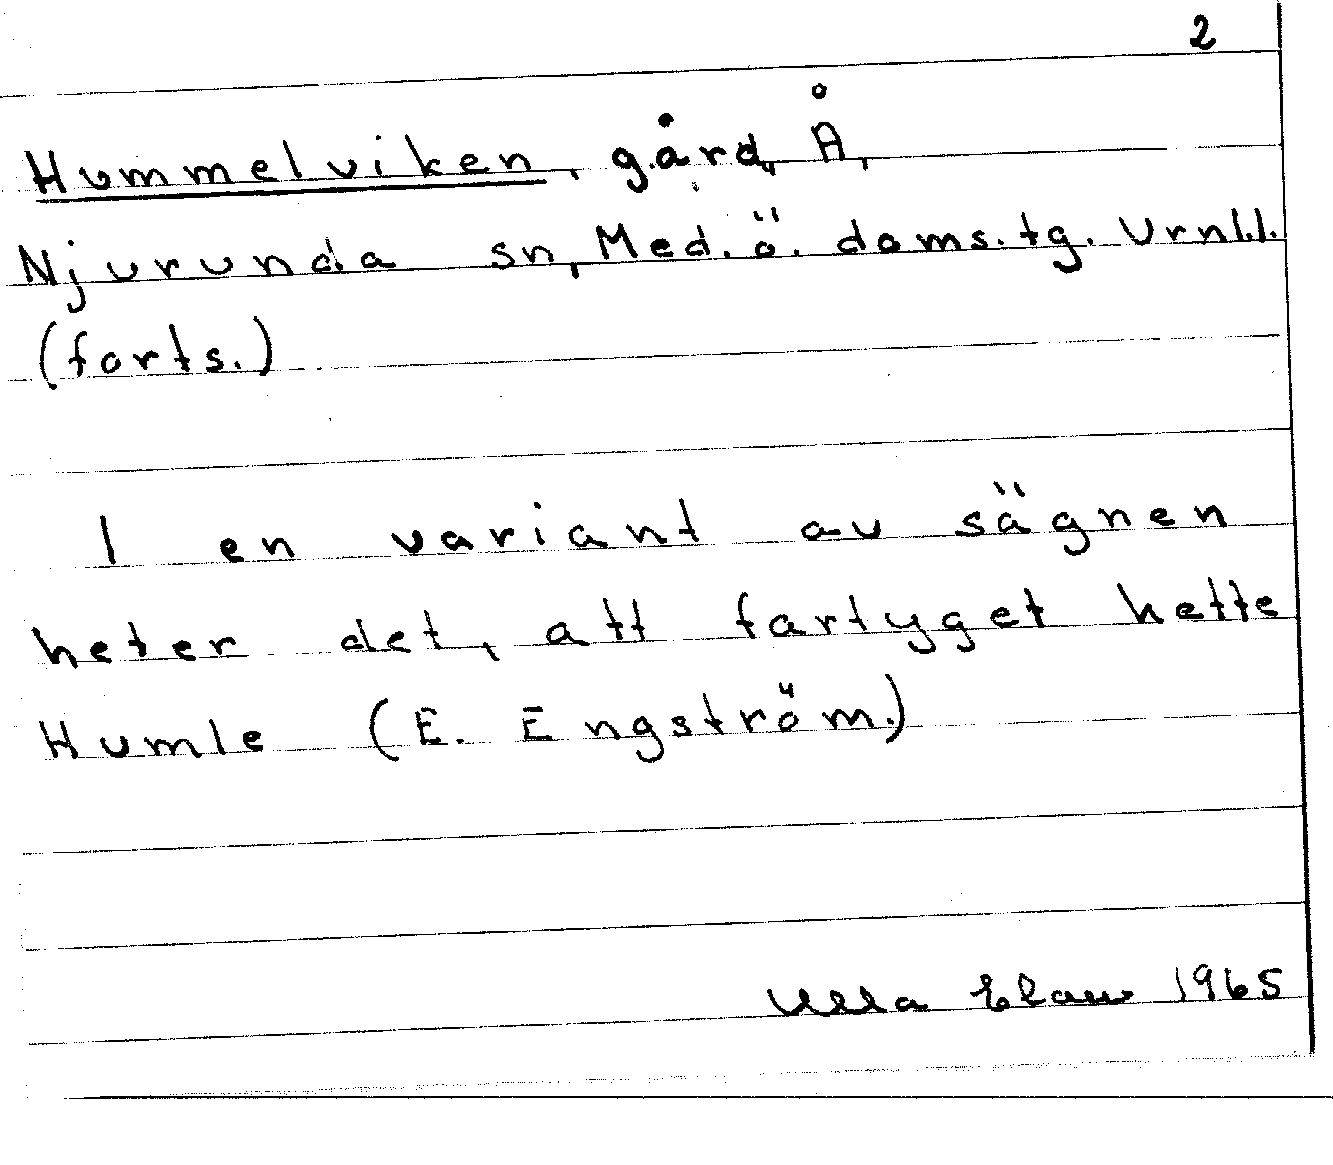 2
Hummelviken, gård, Å,
Njurunda sn, Med. ö. doms.tg. Vrnl.l.
(forts.)
I en variant av sägnen
heter det, att fartyget hette
Humle (E. Engström.)
Ulla 1965